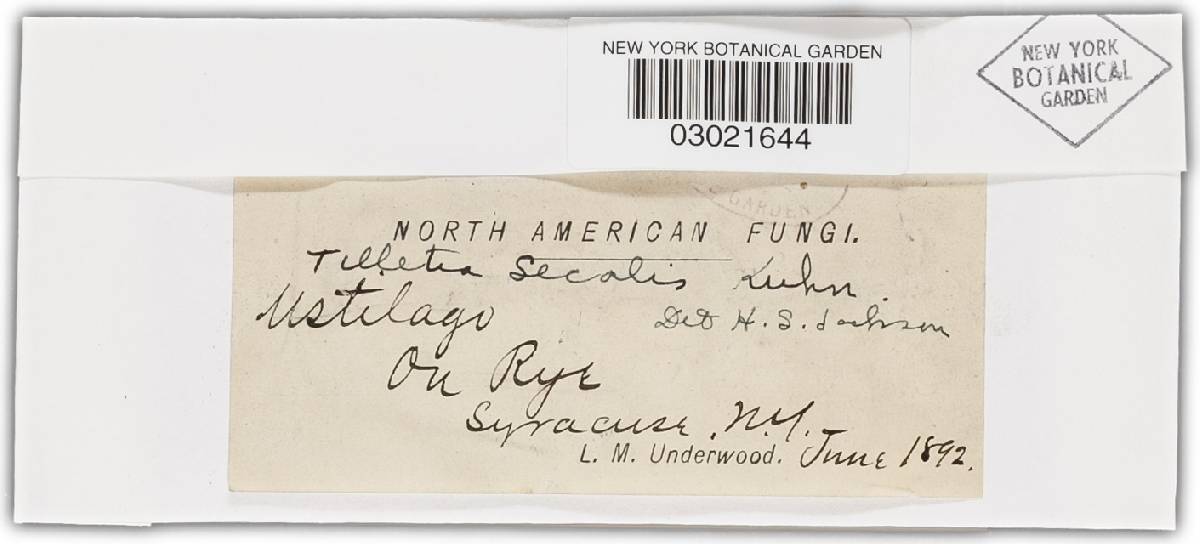 NEW YORK BOTANICAL GARDEN
03021644
NEW YORK
BOTANICAL
GARDEN
GARDEN
NORTH AMERICAN FUNGI.
Tilletia Secalis Kuhn.
Ustilago
Det H. S. Jackson
On Rye
Syracuse, N.Y.
L. M. Underwood. June 1892.